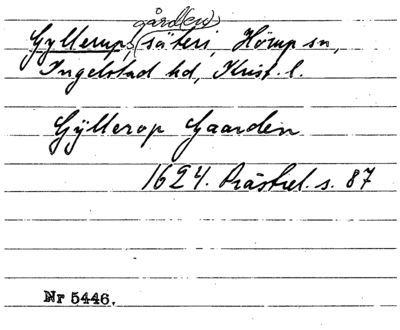 gården
Gyllerup, (säteri, Hörup sn,
Ingelstad hd, Krist. l.
Gÿllerop Gaarden
1624. Prästrel. s. 87
Nr 5446.